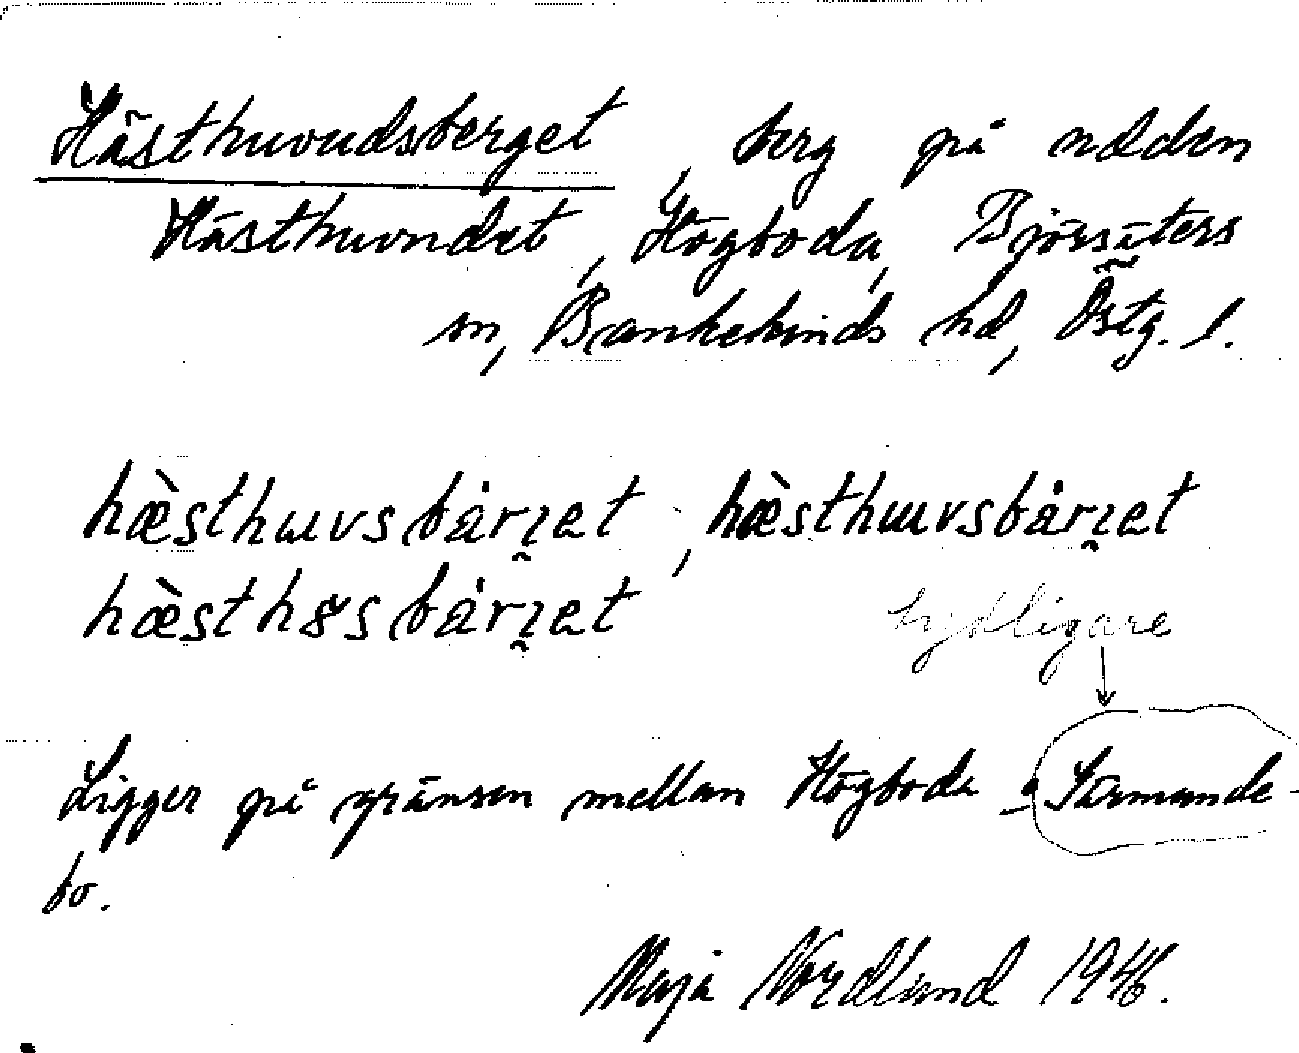 Hästhuvudsberget, berg på udden
Hästhuvudet, Högboda, Björsäters
sn, Bankekinds hd, Östg. l.
hæ̀sthɯvsbårʒ̯et, hæ̀sthɯvsbårʒ̯et
hæ̀sth8sbårʒ̯et
tydligare
Ligger på gränsen mellan Högboda o
bo.
Maja Nordlund 1946.